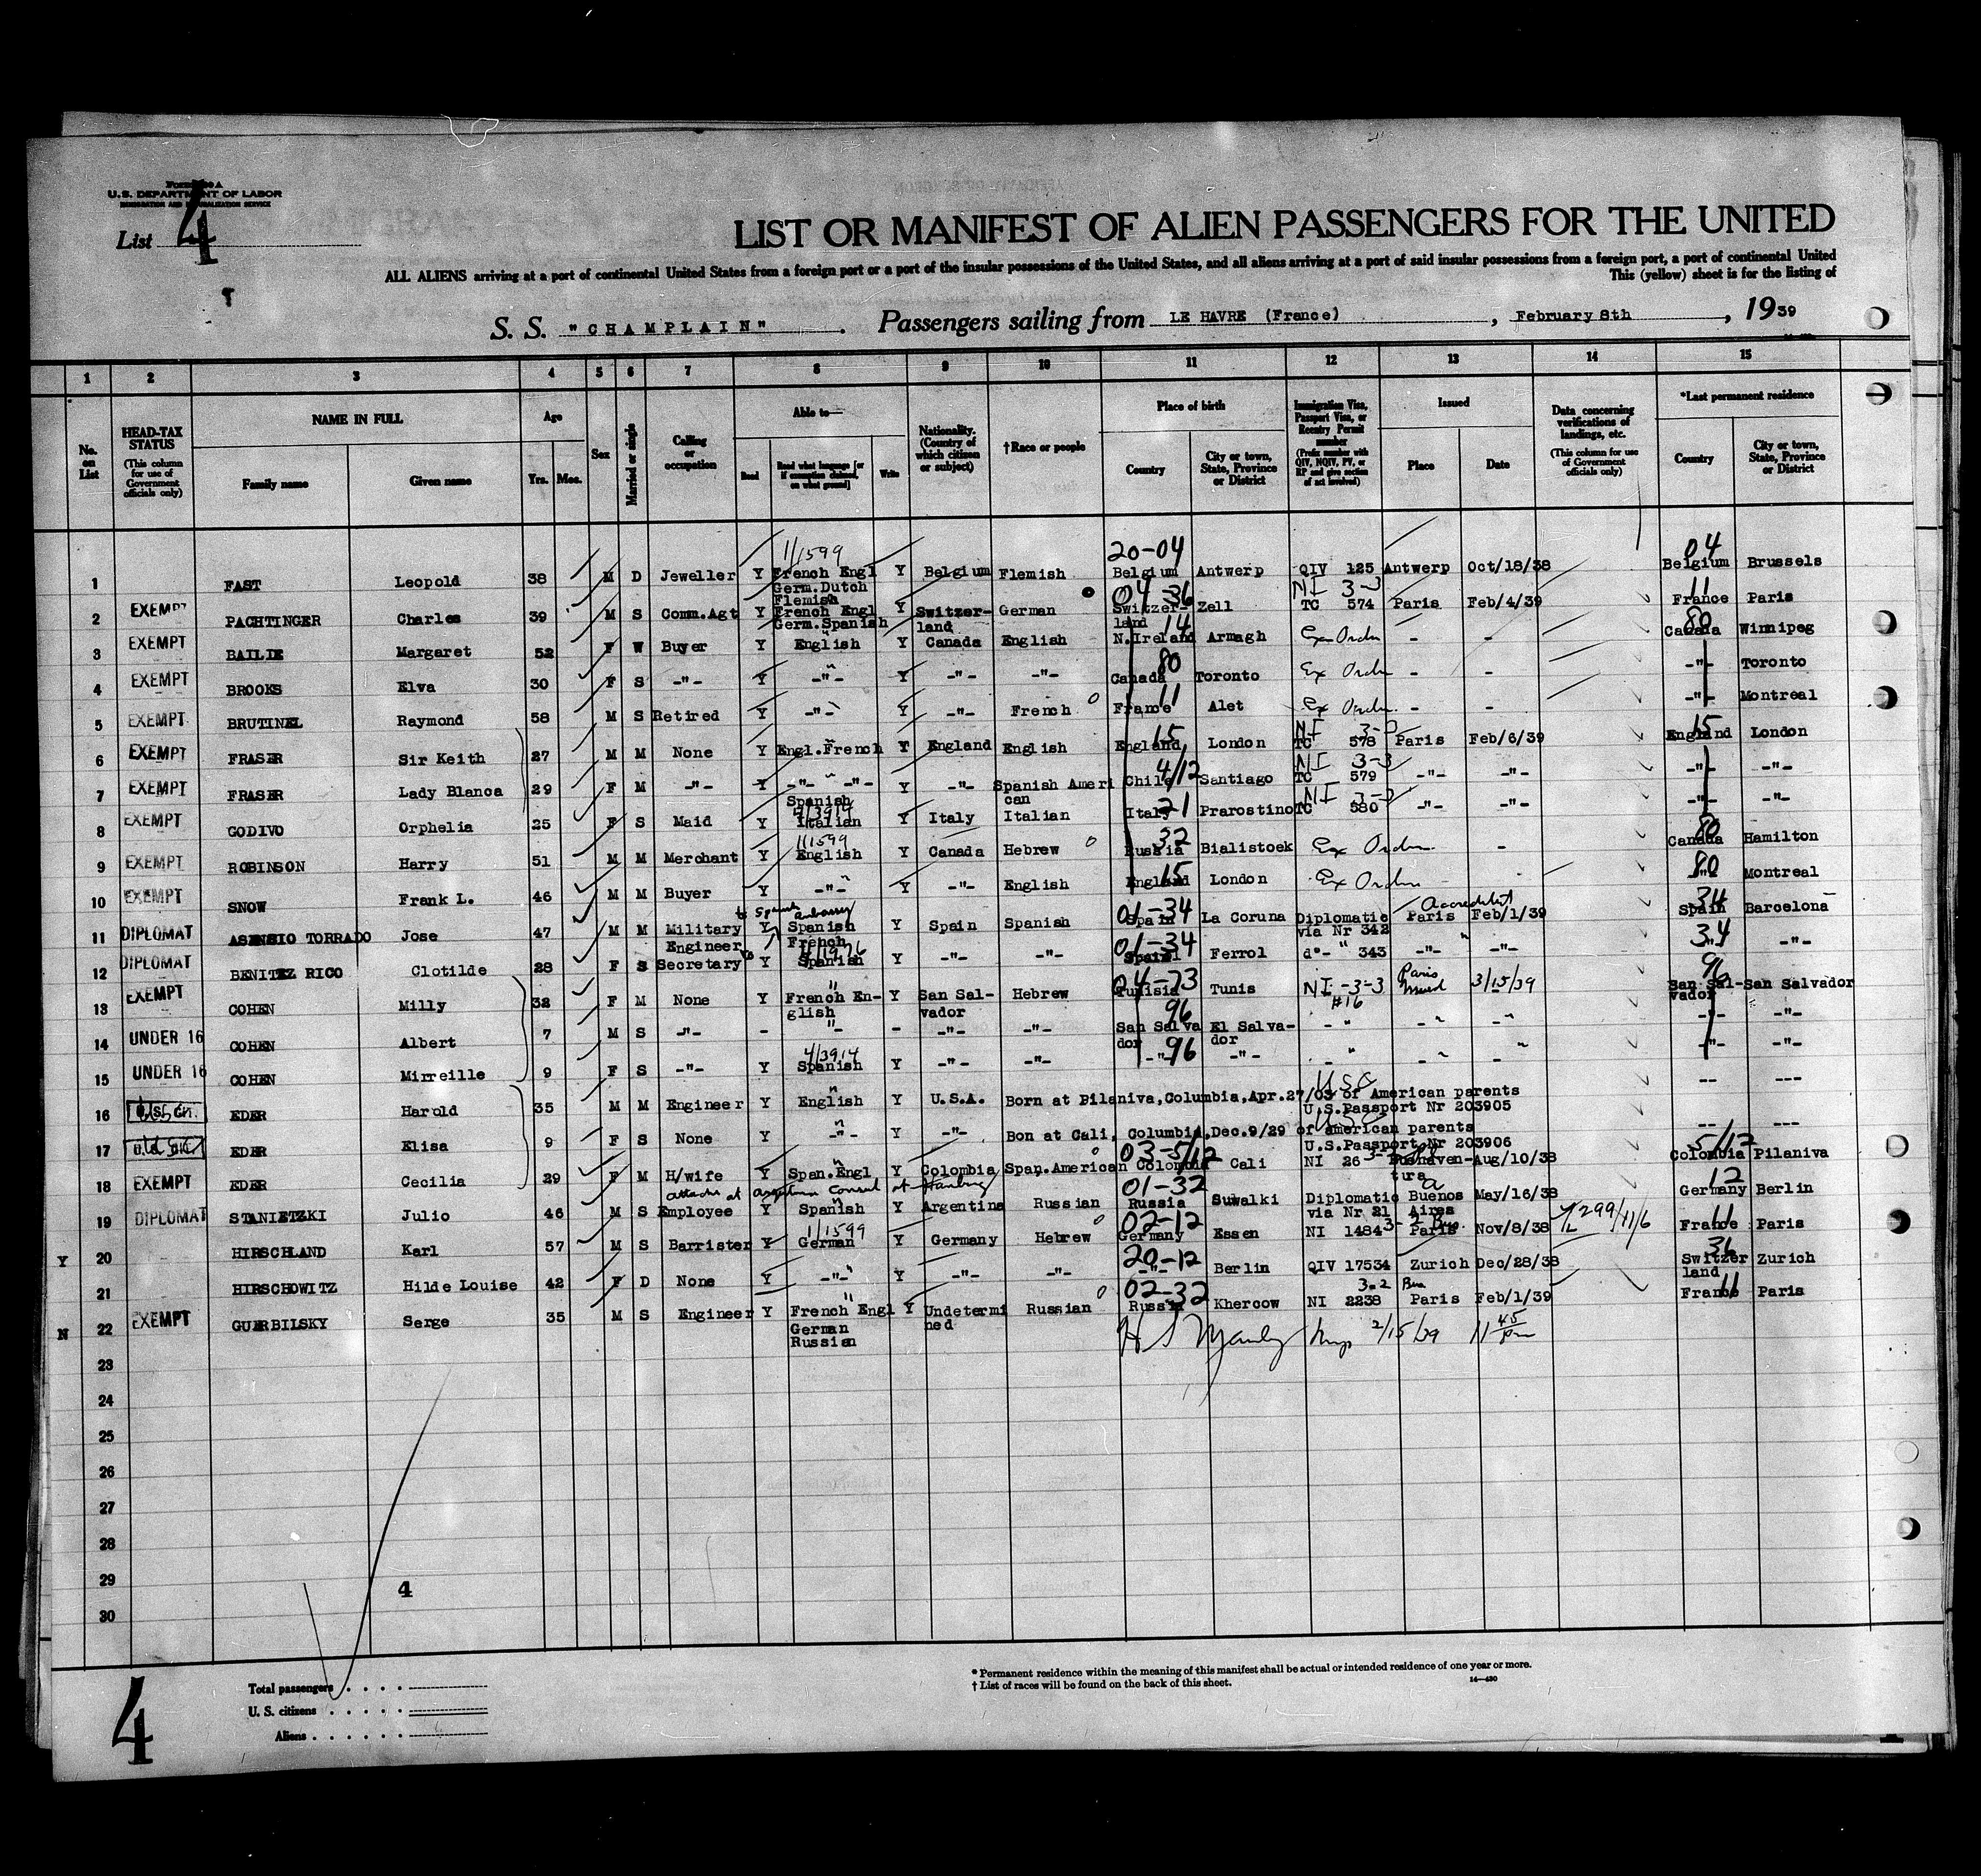 Form
U.S. DEPARTMENT OF LABOR
IMMIGRATION AND NATURALIZATION SERVICE
List 4
LIST OR MANIFEST OF ALIEN PASSENGERS FOR THE UNITED
ALL ALIENS arriving at a port of continental United States from a foreign port or a port of the insular possessions of the United States, and all aliens arriving at a port of said insular possessions from a foreign port, a port of continental United
This (yellow) sheet is for the listing of
S. S. "CHAMPLAIN" . Passengers sailing from LE HAVRE (France) , February 8th , 1939
1 2 3 4 5 6 7 8 9 10 11 12 13 14 15
No. on List
HEAD-TAX STATUS (This column for use of Government officials only)
NAME IN FULL Family name Given name
Age Yrs. Mos.
Sex
Married or single
Calling or occupation
Able to— Read Read what language [or if exemption claimed, on what ground] Write
Nationality. (Country of which citizen or subject)
†Race or people
Place of birth Country City or town, State, Province or District
Immigration Visa, Passport Visa, or Reentry Permit number (Prefix number with QIV, NQIV, PV, or RP and give section of act involved)
Issued Place Date
Data concerning verifications of landings, etc. (This column for use of Government officials only)
*Last permanent residence Country City or town, State, Province or District
11599 20-04 04
1 FAST Leopold 38 M D Jeweller Y French Engl Y Belgium Flemish Belgium Antwerp QIV 125 Antwerp Oct/18/38 Belgium Brussels
Germ.Dutch
Flemish 04 36 NI 3-3 11
2 EXEMPT PACHTINGER Charles 39 M S Comm.Agt Y French Engl Y Switzer- German Switzer- Zell TC 574 Paris Feb/4/39 France Paris
Germ.Spanish land land 14 80
3 EXEMPT BAILIE Margaret 52 F W Buyer Y English Y Canada English N.Ireland Armagh Ex Order - - Canada Winnipeg
80
4 EXEMPT BROOKS Elva 30 F S -"- Y -"- Y -"- -"- Canada Toronto Ex Order - - -"- Toronto
11
5 EXEMPT BRUTINEL Raymond 58 M S Retired Y -"- Y -"- French France Alet Ex Order - - -"- Montreal
15 NI 3-3 15
6 EXEMPT FRASER Sir Keith 27 M M None Y Engl.French Y England English England, London TC 578 Paris Feb/6/39 England London
4/12 NI 3-3
7 EXEMPT FRASER Lady Blanca 29 F M -"- Y -"- -"- Y -"- Spanish Ameri Chile Santiago TC 579 -"- -"- -"- -"-
Spanish can 21 NI 3-3
8 EXEMPT GODIVO Orphelia 25 F S Maid Y Italian Y Italy Italian Italy Prarostino TC 580 -"- -"- -"- -"-
11599 32 80
9 EXEMPT ROBINSON Harry 51 M M Merchant Y English Y Canada Hebrew Russia Bialistoek Ex Order - Canada Hamilton
15 80
10 EXEMPT SNOW Frank L. 46 M M Buyer Y -"- Y -"- English England London Ex Order -"- Montreal
to Spanish Embassy 01-34 Accredited 34
11 DIPLOMAT ASENSIO TORRADO Jose 47 M M Military Y Spanish Y Spain Spanish Spain La Coruna Diplomatic Paris Feb/1/39 Spain Barcelona
Engineer French 01-34 via Nr 342 34
12 DIPLOMAT BENITEZ RICO Clotilde 28 F S Secretary Y Spanish Y -"- -"- Spain Ferrol d°- " 343 -"- -"- -"- -"-
04-73 Paris 96
13 EXEMPT COHEN Milly 32 F M None Y French En- Y San Sal- Hebrew Tunisia Tunis NI-3-3 Issued 3/15/39 San Sal- San Salvador
glish vador #16 vador
96
14 UNDER 16 COHEN Albert 7 M S -"- - -"- - -"- -"- San Salva El Salva- - " - " - " -"- -"-
4/3914 dor 96 dor
15 UNDER 16 COHEN Mirreille 9 F S -"- Y Spanish Y -"- -"- -"- -"- - " - " - " -"- -"-
USC
16 EDER Harold 35 M M Engineer Y English Y U.S.A. Born at Pilaniva,Columbia,Apr.27/03 of American parents -- ---
U.S.Passport Nr 203905
USC
17 EDER Elisa 9 F S None Y -"- Y -"- Bon at Cali, Columbia,Dec.9/29 of american parents -- ---
U.S.Passport Nr 203906
03-5/12 5/12
18 EXEMPT EDER Cecilia 29 F M H/wife Y Span.Engl Y Colombia Span.American Colombia Cali NI 26 Buenaven- Aug/10/38 Colombia Pilaniva
attache at Argentine Consul at Hamburg 01-32 tura 12
19 DIPLOMAT STANIETZKI Julio 46 M S Employee Y Spanish Y Argentina Russian Russia Suwalki Diplomatic Buenos May/16/38 Germany Berlin
11599 02-12 via Nr 21 Aires 11
Y 20 HIRSCHLAND Karl 57 M S Barrister Y German Y Germany Hebrew Germany Essen NI 1484 3-2 Bus. Paris Nov/8/38 France Paris
20-12 36
21 HIRSCHOWITZ Hilde Louise 42 F D None Y -"- Y -"- -"- -"- Berlin QIV 17534 Zurich Dec/28/38 Switzer Zurich
02-32 3-2 Bus land 11
N 22 EXEMPT GUERBILSKY Serge 35 M S Engineer Y French Engl Y Undetermi Russian Russia Khercow NI 2238 Paris Feb/1/39 France Paris
German ned
Russian
Insp 2/15/39 11 45 pm
23
24
25
26
27
28
29
30
4
4
Total passengers
U. S. citizens
Aliens
* Permanent residence within the meaning of this manifest shall be actual or intended residence of one year or more.
† List of races will be found on the back of this sheet.
14—430